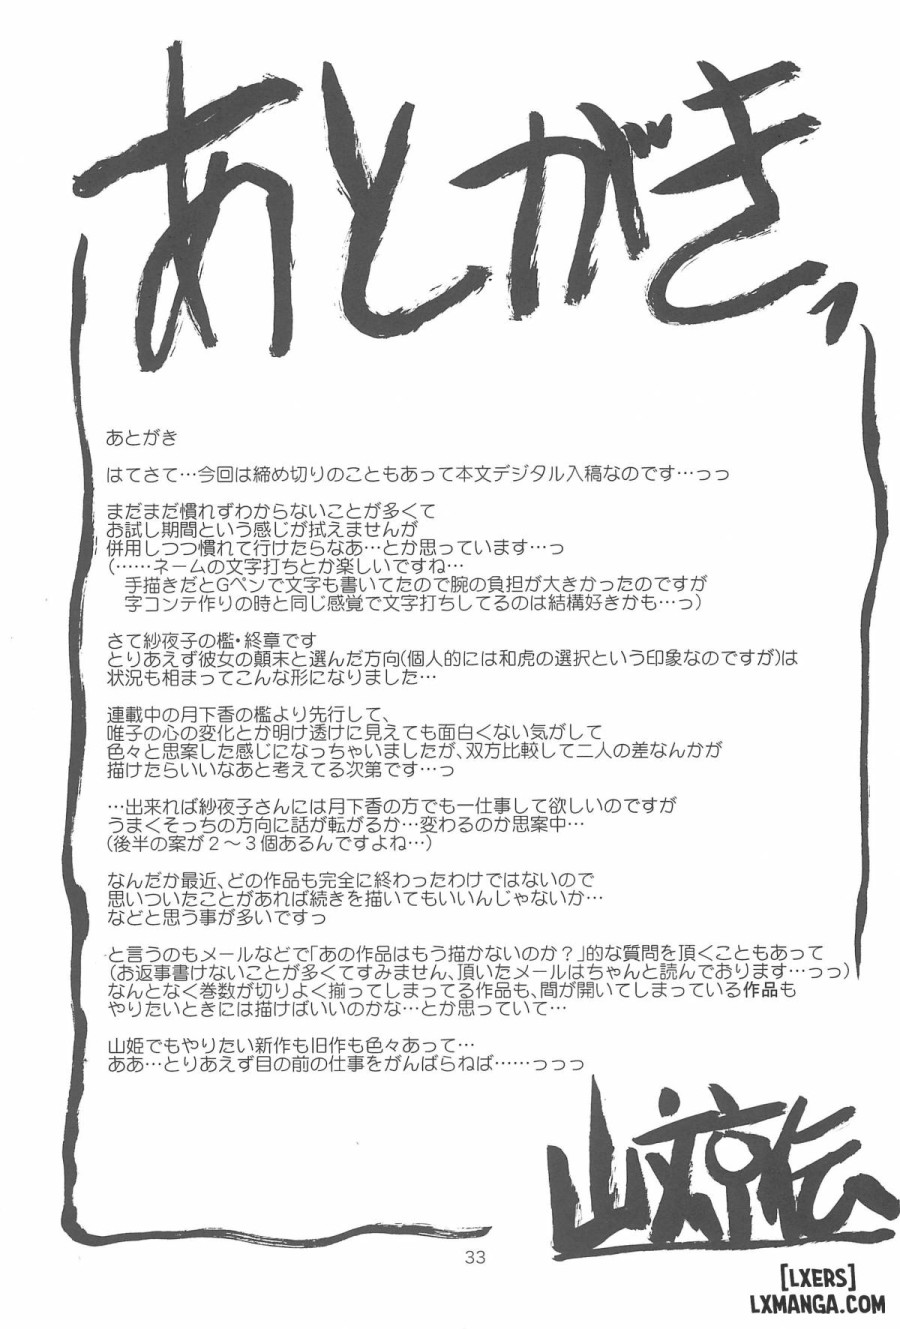 あとがきっ
あとがき
はてさて…今回は締め切りのこともあって本文デジタル入稿なのです…っっ
まだまだ慣れずわからないことが多くて
お試し期間という感じが拭えませんが
併用しつつ慣れて行けたらなあ…とか思っています…っ
(……ネームの文字打ちとか楽しいですね…
手描きだとGペンで文字も書いてたので腕の負担が大きかったのですが
字コンテ作りの時と同じ感覚で文字打ちしてるのは結構好きかも…っ)
さて紗夜子の檻・終章です
とりあえず彼女の顛末と選んだ方向(個人的には和虎の選択という印象なのですが)は
状況も相まってこんな形になりました…
連載中の月下香の檻より先行して、
唯子の心の変化とか明け透けに見えても面白くない気がして
色々と思案した感じになっちゃいましたが、双方比較して二人の差なんかが
描けたらいいなあと考えてる次第です…っ
…出来れば紗夜子さんには月下香の方でも一仕事して欲しいのですが
うまくそっちの方向に話が転がるか…変わるのか思案中…
(後半の案が2〜3個あるんですよね…)
なんだか最近、どの作品も完全に終わったわけではないので
思いついたことがあれば続きを描いてもいいんじゃないか…
などと思う事が多いですっ
と言うのもメールなどで「あの作品はもう描かないのか?」的な質問を頂くこともあって
(お返事書けないことが多くてすみません、頂いたメールはちゃんと読んでおります…っっ)
なんとなく巻数が切りよく揃ってしまってる作品も、間が開いてしまっている作品も
やりたいときには描けばいいのかな…とか思っていて…
山姫でもやりたい新作も旧作も色々あって…
ああ…とりあえず目の前の仕事をがんばらねば……っっっ
山文京伝
33
[LXERS]
LXMANGA.COM